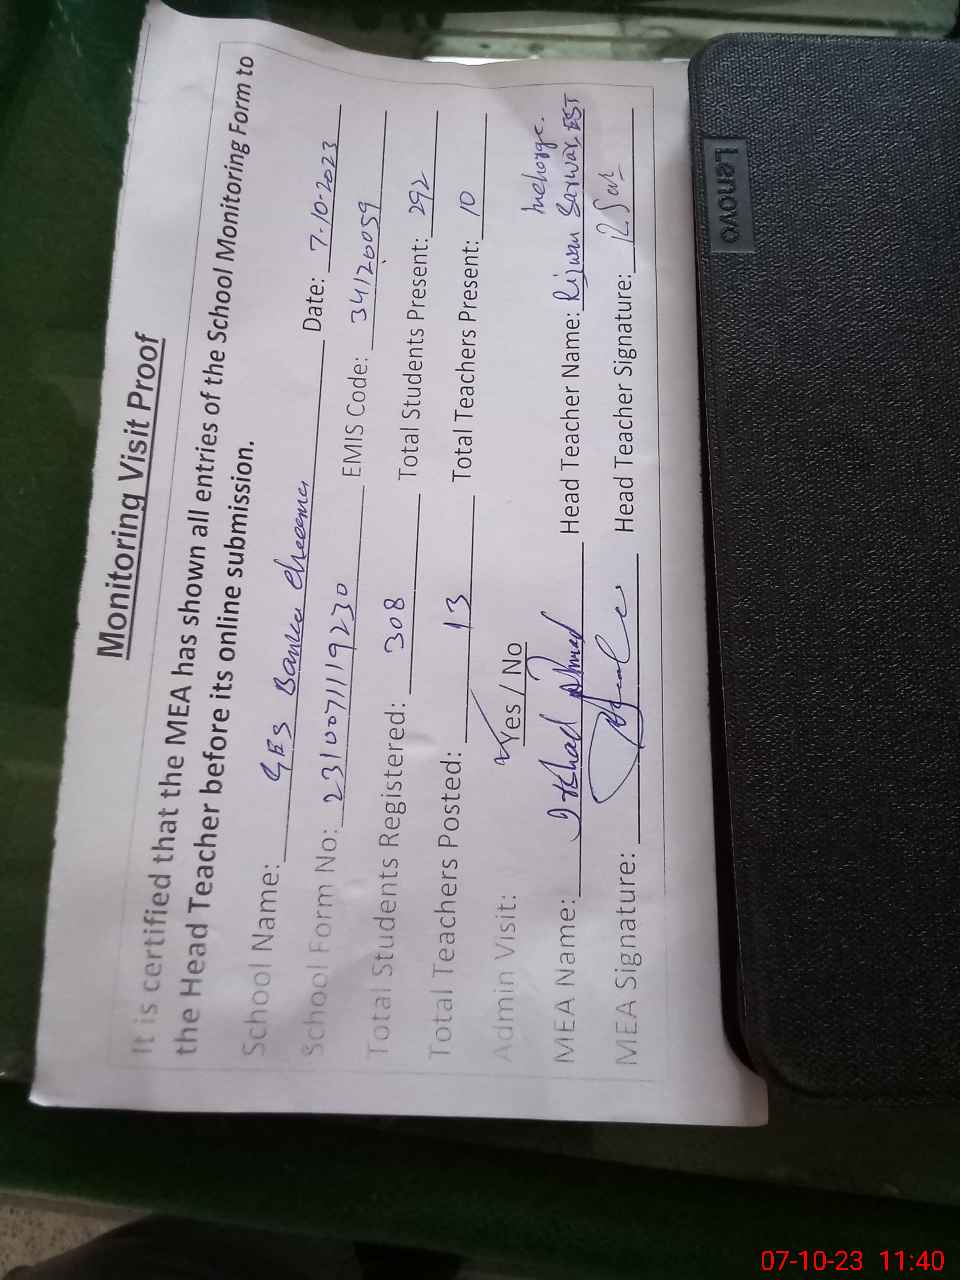 Monitoring Visit Proof
It is certified that the MEA has shown all entries of the School Monitoring Form to
the Head Teacher before its online submission.
School Name: GES Banka Cheema Date: 7.10.2023
School Form No: 2310071119230 EMIS Code: 34120059
Total Students Registered: 308 Total Students Present: 292
Total Teachers Posted: 13 Total Teachers Present: 10
Admin Visit: Yes / No
Incharge.
MEA Name: Irshad Ahmad Head Teacher Name: Rizwan Sarwar, EST
MEA Signature: Head Teacher Signature:
Lenovo
07-10-23 11:40